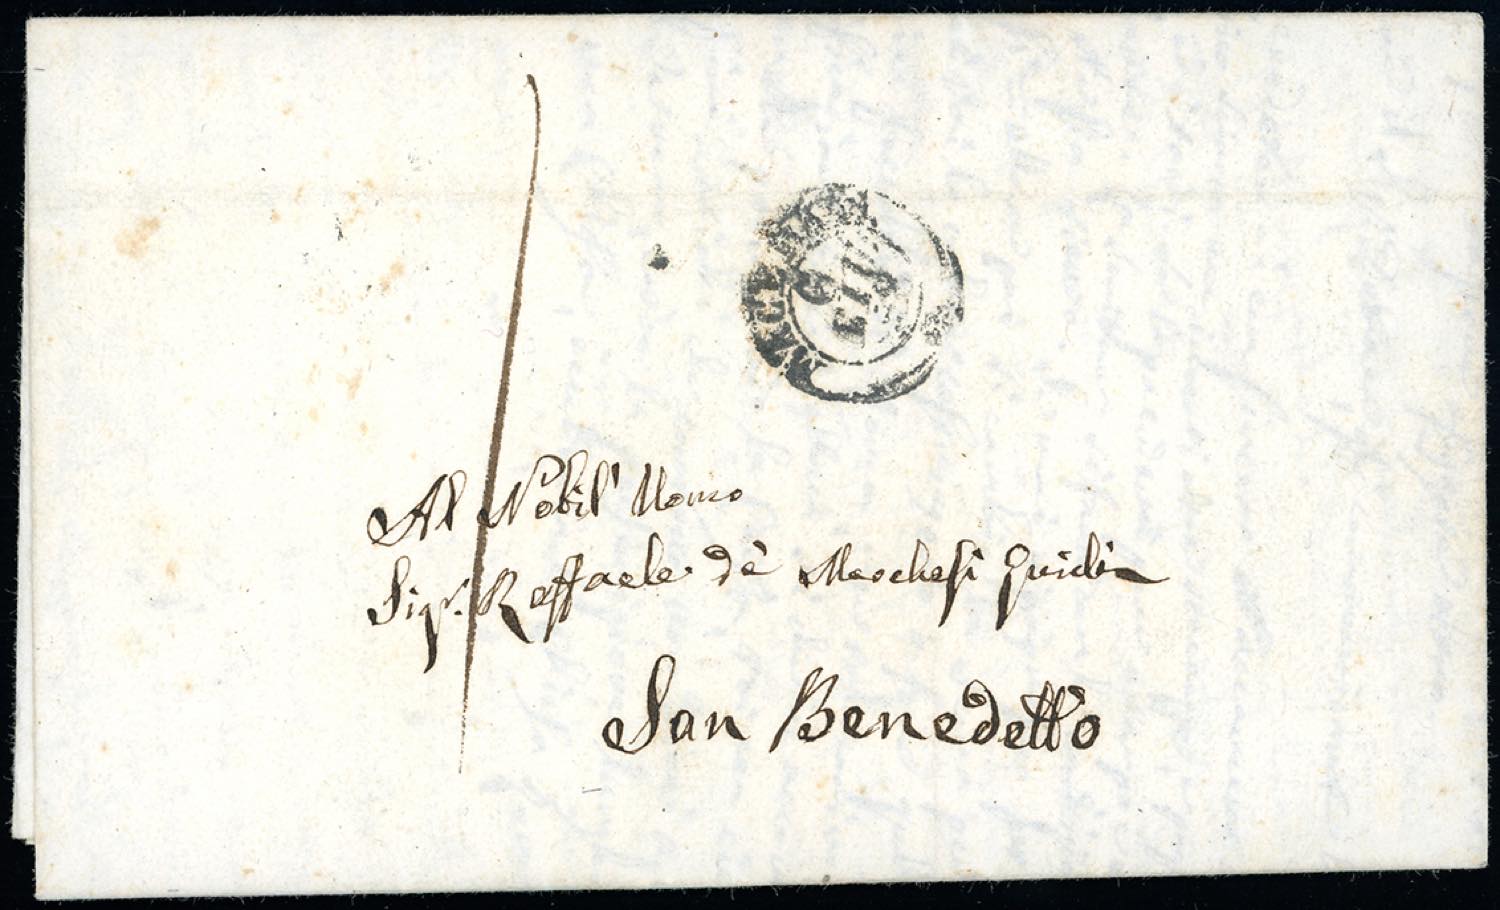 Al Nobil' Uomo
Sigr. Raffaele de' Marchesi Guidi
San Benedetto